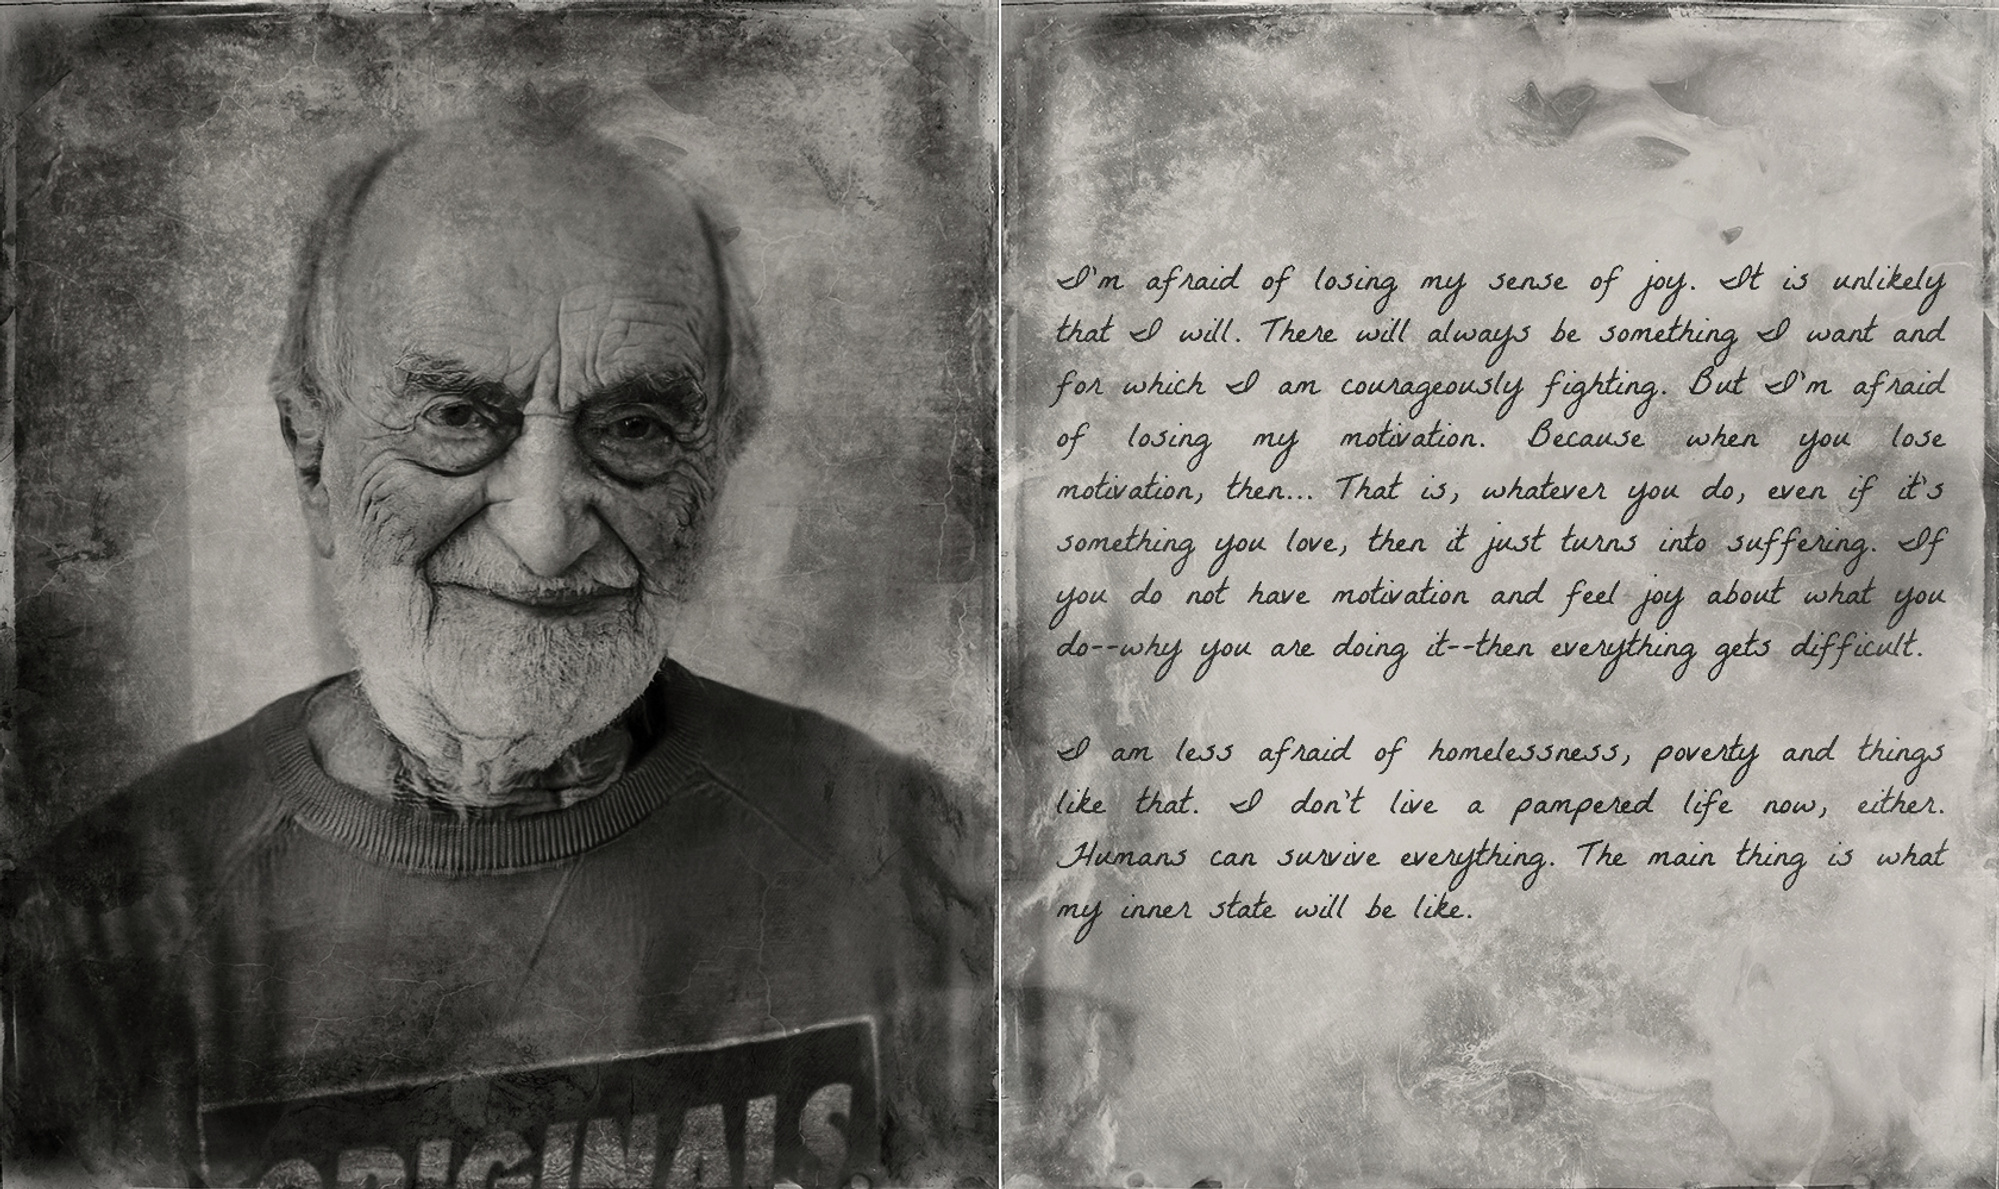 I'm afraid of losing my sense of joy. It is unlikely
that I will. There will always be something I want and
for which I am courageously fighting. But I'm afraid
of losing my motivation. Because when you lose
motivation, then... That is, whatever you do, even if it's
something you love, then it just turns into suffering. If
you do not have motivation and feel joy about what you
do--why you are doing it--then everything gets difficult.
I am less afraid of homelessness, poverty and things
like that. I don't live a pampered life now, either.
Humans can survive everything. The main thing is what
my inner state will be like.
ORIGINALS